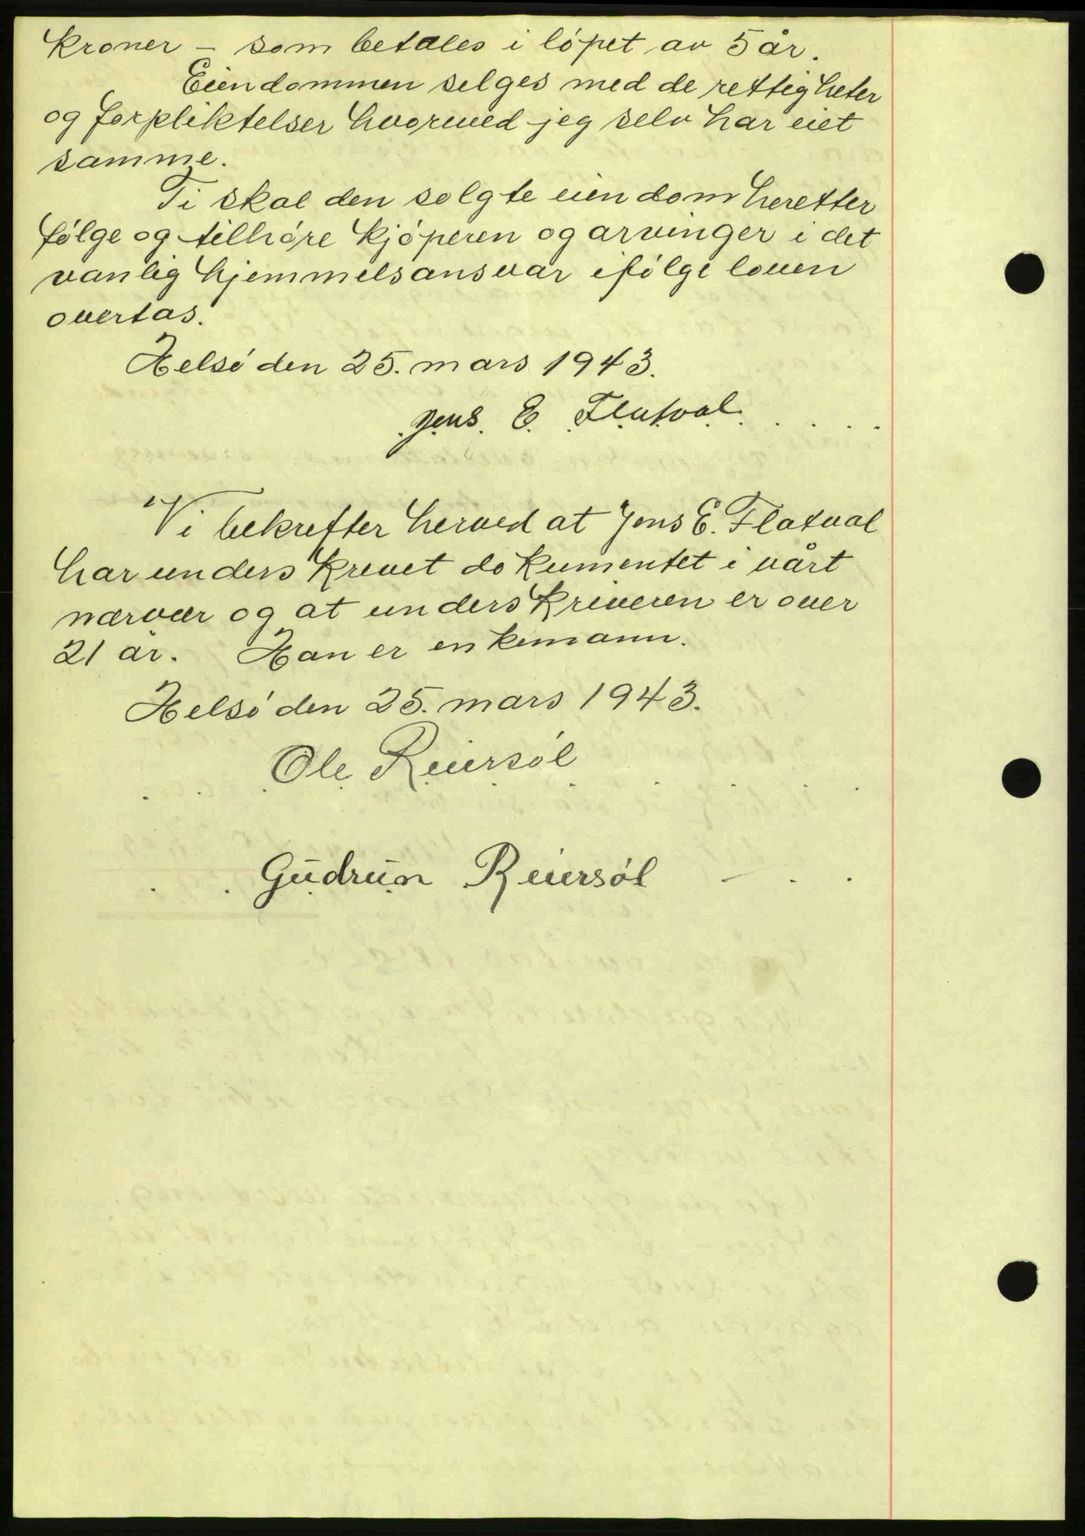 kroner – som betales i løpet av 5 år.
Eiendommen selges med de rettigheter
og forpliktelser hvormed jeg selv har eiet
samme.
Ti skal den solgte eiendom heretter
følge og tilhøre kjøperen og arvinger i det
vanlig hjemmelsansvar ifølge loven
overtas.
Helsø den 25. mars 1943.
Jens E. Flatval
Vi bekrefter herved at Jens E. Flatval
har underskrevet dokumentet i vårt
nærvær og at underskriveren er over
21 år. Han er enkemann.
Helsø den 25. mars 1943.
Ole Reiersøl
Gudrun Reiersøl